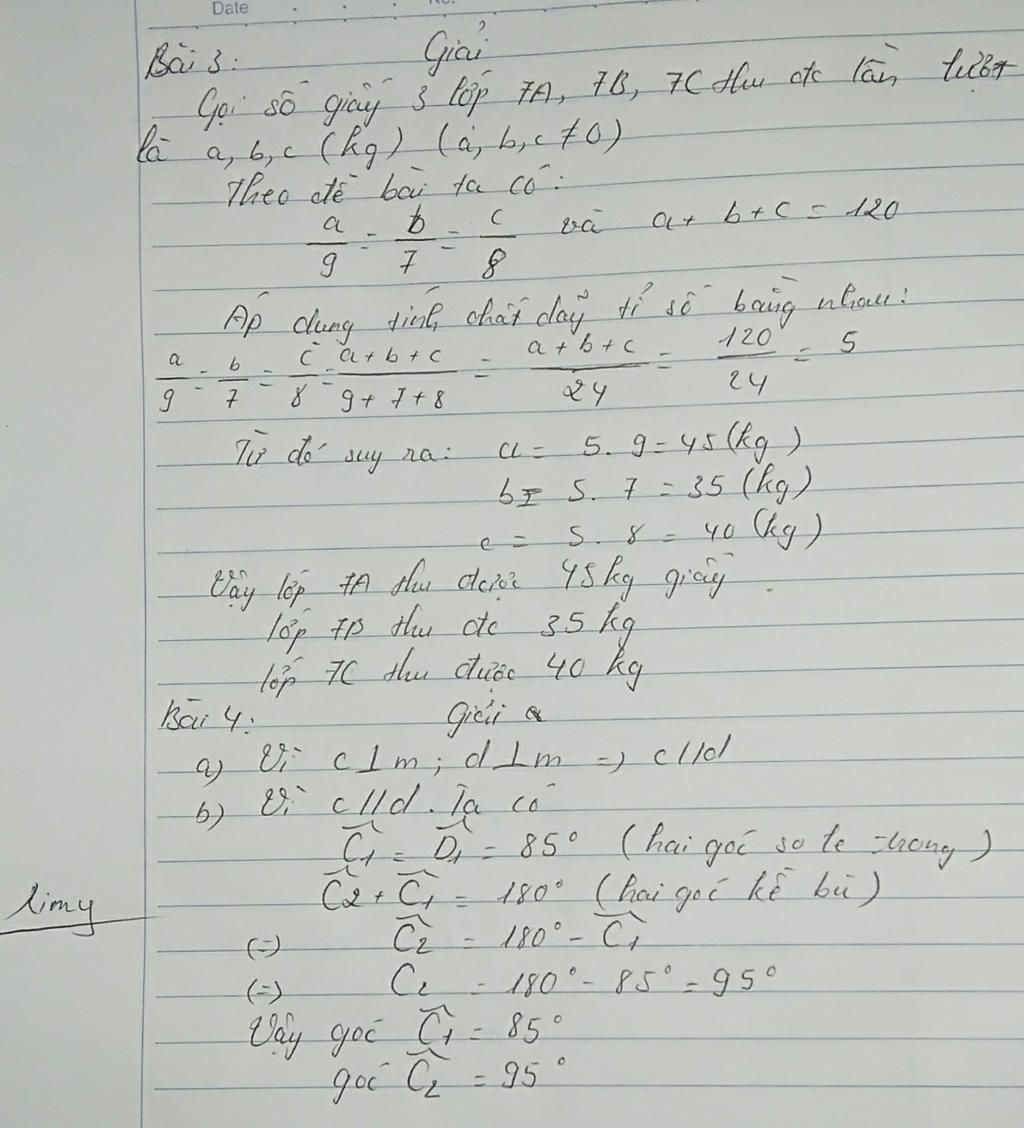 Date
Bài 3: Giải
Gọi số giấy 3 lớp 7A, 7B, 7C thu đc lần lượt
là a, b, c (kg) (a, b, c ≠ 0)
Theo đề bài ta có:
a/9 = b/7 = c/8 và a + b + c = 120
Áp dụng tính chất dãy tỉ số bằng nhau:
a/9 = b/7 = c/8 = a + b + c/9 + 7 + 8 = a + b + c/24 = 120/24 = 5
Từ đó suy ra: a = 5. 9 = 45 (kg)
b = 5. 7 = 35 (kg)
c = 5. 8 = 40 (kg)
Vậy lớp 7A thu được 45kg giấy.
lớp 7B thu đc 35 kg
lớp 7C thu được 40 kg
Bài 4: Giải
a) Vì c⊥m; d⊥m => c//d
b) Vì c//d. Ta có
Ĉ1 = D̂1 = 85° (hai góc so le trong)
Ĉ2 + Ĉ1 = 180° (hai góc kề bù)
(=) Ĉ2 = 180° - Ĉ1
limy
(=) C2 = 180° - 85° = 95°
Vậy góc Ĉ1 = 85°
góc Ĉ2 = 95°